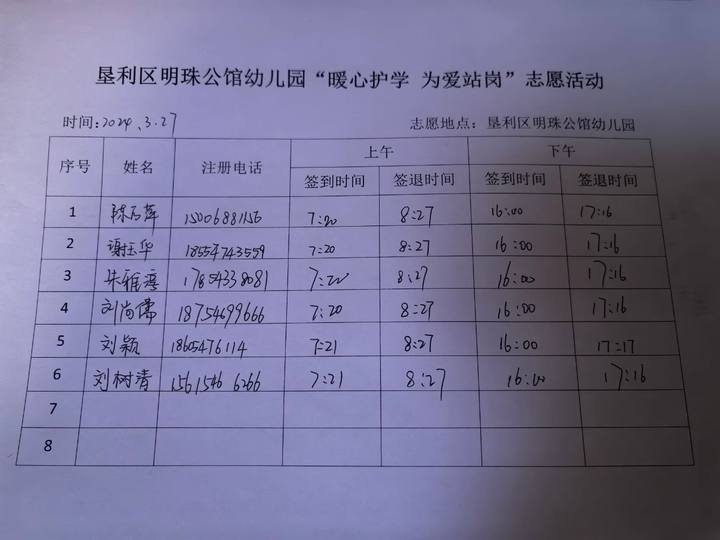 垦利区明珠公馆幼儿园“暖心护学 为爱站岗”志愿活动
时间:2024.3.27 志愿地点：垦利区明珠公馆幼儿园
序号 姓名 注册电话 上午 下午
签到时间 签退时间 签到时间 签退时间
1 陈石萍 15006881156 7:20 8:27 16:00 17:16
2 谢玉华 18554743559 7:20 8:27 16:00 17:16
3 朱雅淳 17854338081 7:20 8:27 16:00 17:16
4 刘尚儒 18754699666 7:20 8:27 16:00 17:16
5 刘颖 18605476114 7:21 8:27 16:00 17:17
6 刘树清 15615466266 7:21 8:27 16:00 17:16
7
8